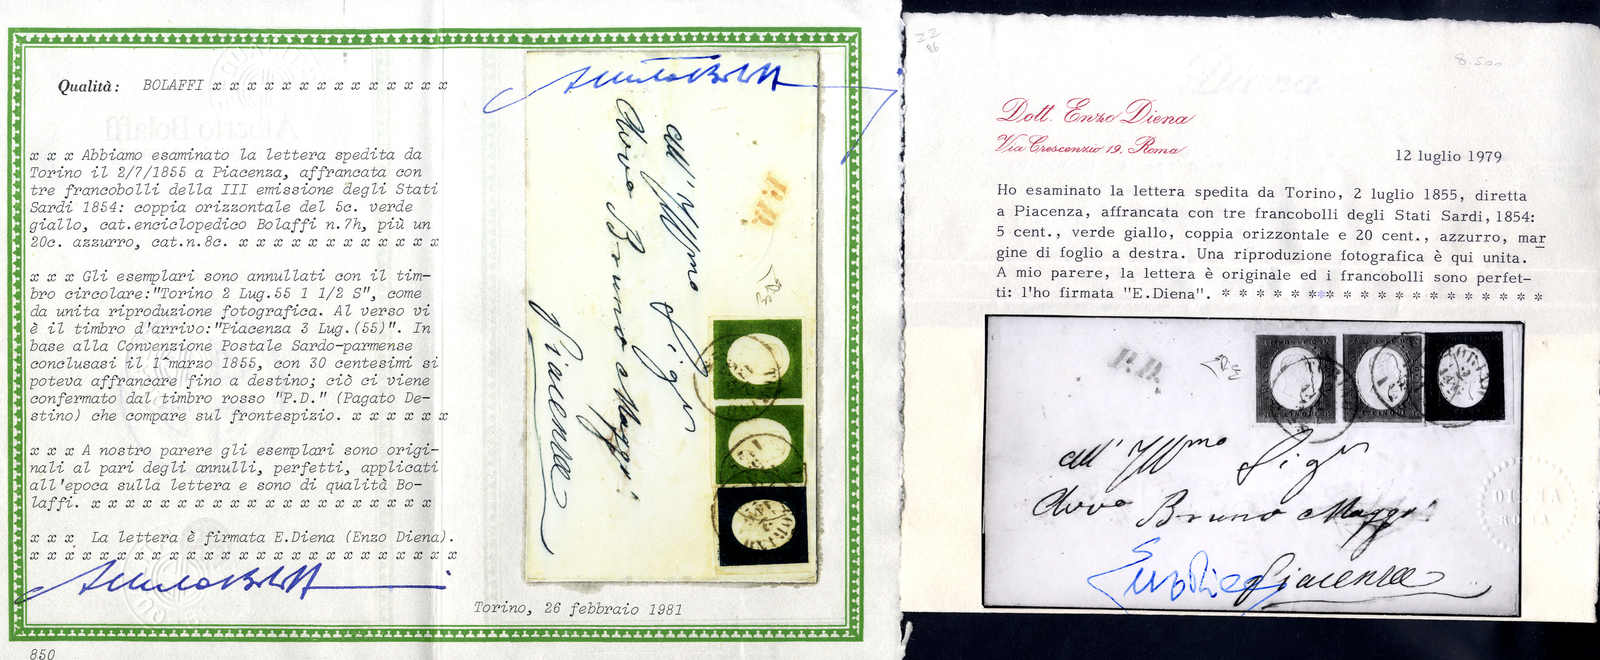 Qualità: BOLAFFI x x x x x x x x x x x x x x
x x x Abbiamo esaminato la lettera spedita da
Torino il 2/7/1855 a Piacenza, affrancata con
tre francobolli della III emissione degli Stati
Sardi 1854: coppia orizzontale del 5c. verde
giallo, cat.enciclopedico Bolaffi n.7h, più un
20c. azzurro, cat.n.8c. x x x x x x x x x x x x
x x x Gli esemplari sono annullati con il tim-
bro circolare:"Torino 2 Lug.55 1 1/2 S", come
da unita riproduzione fotografica. Al verso vi
è il timbro d'arrivo:"Piacenza 3 Lug.(55)". In
base alla Convenzione Postale Sardo-parmense
conclusasi il 1°marzo 1855, con 30 centesimi si
poteva affrancare fino a destino; ciò ci viene
confermato dal timbro rosso "P.D." (Pagato De-
stino) che compare sul frontespizio. x x x x x x
x x x A nostro parere gli esemplari sono origi-
nali al pari degli annulli, perfetti, applicati
all'epoca sulla lettera e sono di qualità Bo-
laffi. x x x x x x x x x x x x x x x x x x x
x x x  La lettera è firmata E.Diena (Enzo Diena).
x x x x x x x x x x x x x x x x x x x x x x x
Torino, 26 febbraio 1981
850
all'Illmo Sigr
Avvo Bruno Maggi
Piacenza
P.D.
22
86
8.500
Dott. Enzo Diena
Via Crescenzio 19. Roma
12 luglio 1979
Ho esaminato la lettera spedita da Torino, 2 luglio 1855, diretta
a Piacenza, affrancata con tre francobolli degli Stati Sardi, 1854:
5 cent., verde giallo, coppia orizzontale e 20 cent., azzurro, mar
gine di foglio a destra. Una riproduzione fotografica è qui unita.
A mio parere, la lettera è originale ed i francobolli sono perfet-
ti: l'ho firmata "E.Diena". * * * * * * * * * * * * * * * * * * *
P.D.
all'Illmo Sigr
Avvo Bruno Maggi
Enzo Diena
Piacenza